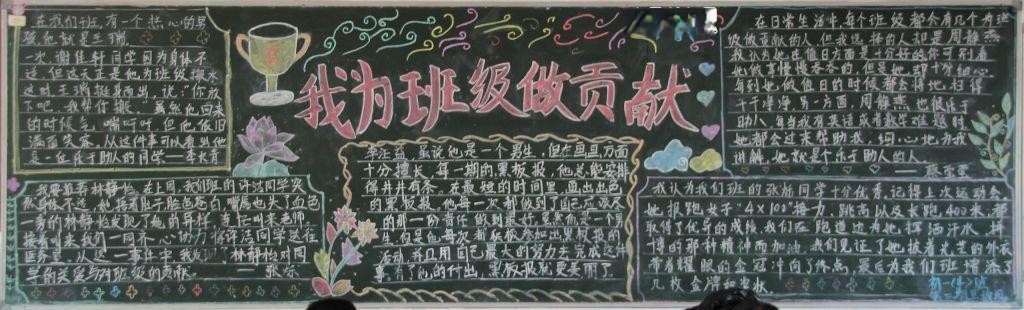 在我们班,有一个热心的男
孩,他就是王瑞。
一次,谢佳轩同学因为身体不
适,但这天正是他为班级搬水
这时王瑞挺身而出,说:“你放
下吧,我帮你搬。”虽然他回来
的时候气喘吁吁,但他依旧
满面笑容。从这件事可以看出他
是一位乐于助人的同学
我为班级做贡献
在日常生活中,每个班级都会有几个为班
级做贡献的人,但我选择的人却是周静燕
我认为她在值日方面是十分好的,你可别看
她做事慢慢吞吞的,但是她却十分细心,
每到她做值日的时候都会将地扫得
干干净净。另一方面,周静燕也很乐于
助人,每当我有英语或者数学难题时
她都会过来帮助我,细心地为我
讲解,她就是个乐于助人的人。
我要推荐林静怡,在上周,我们班的许洁同学突
然身体不适,她捂着肚子脸色苍白,嘴唇也失了血色
一旁的林静怡发现了她的异样,
接着叫来我们一同齐心协力将许洁同学送往
医务室,从这一事件中我
同学的关爱与对班级的贡献。
虽说他是一个男生,但在画画方面
十分擅长,每一期的黑板报,他总能安排
得井井有条,在最短的时间里,画出出色
的黑板报,他每一次都做到了自己
的那一份责任做到最好,虽然他是一个男
生,但是他每次积极参加出黑板报的
活动,并且用自己最大的努力去完成这件
事,有了他的付出,黑板报就更美丽了。
我认为我们班的张烁同学十分优秀,记得上次运动会
她报跑女子“4×100”接力,跳高以及长跑,400米,都
取得了优异的成绩,我们在跑道边为她挥洒汗水,拼
搏的那种精神而加油,我们见证了她披着光芒的外衣
带着耀眼的金冠冲向了终点,最后为我们班增添了
几枚金牌和奖状